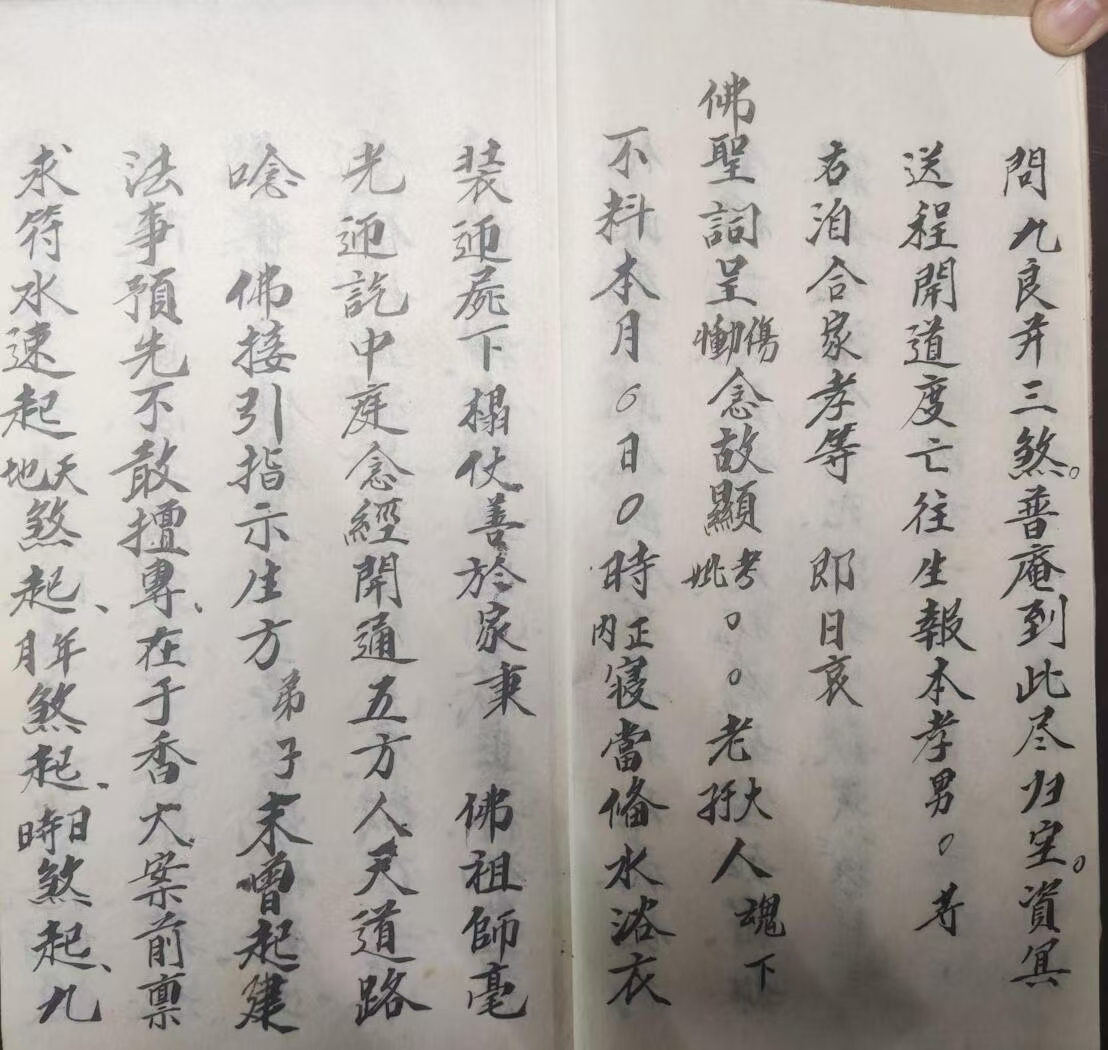 問九良弃三煞。普庵到此尽归空。資冥
送程開道度亡往生報本孝男。等
右洎合家孝等 即日哀
佛聖詞呈慟傷念故顯考妣。。老大孺人魂下
不料本月〇日〇時正内寝當俻水浴衣
装迊屍下榻仗善於家秉 佛祖師毫
光迊訖中庭念經開通五方人天道路
唸 佛接引指示生方弟子未曾起建
法事預先不敢擅專、在于香火案前禀
求符水速起天地煞起、年月煞起、日時煞起、九